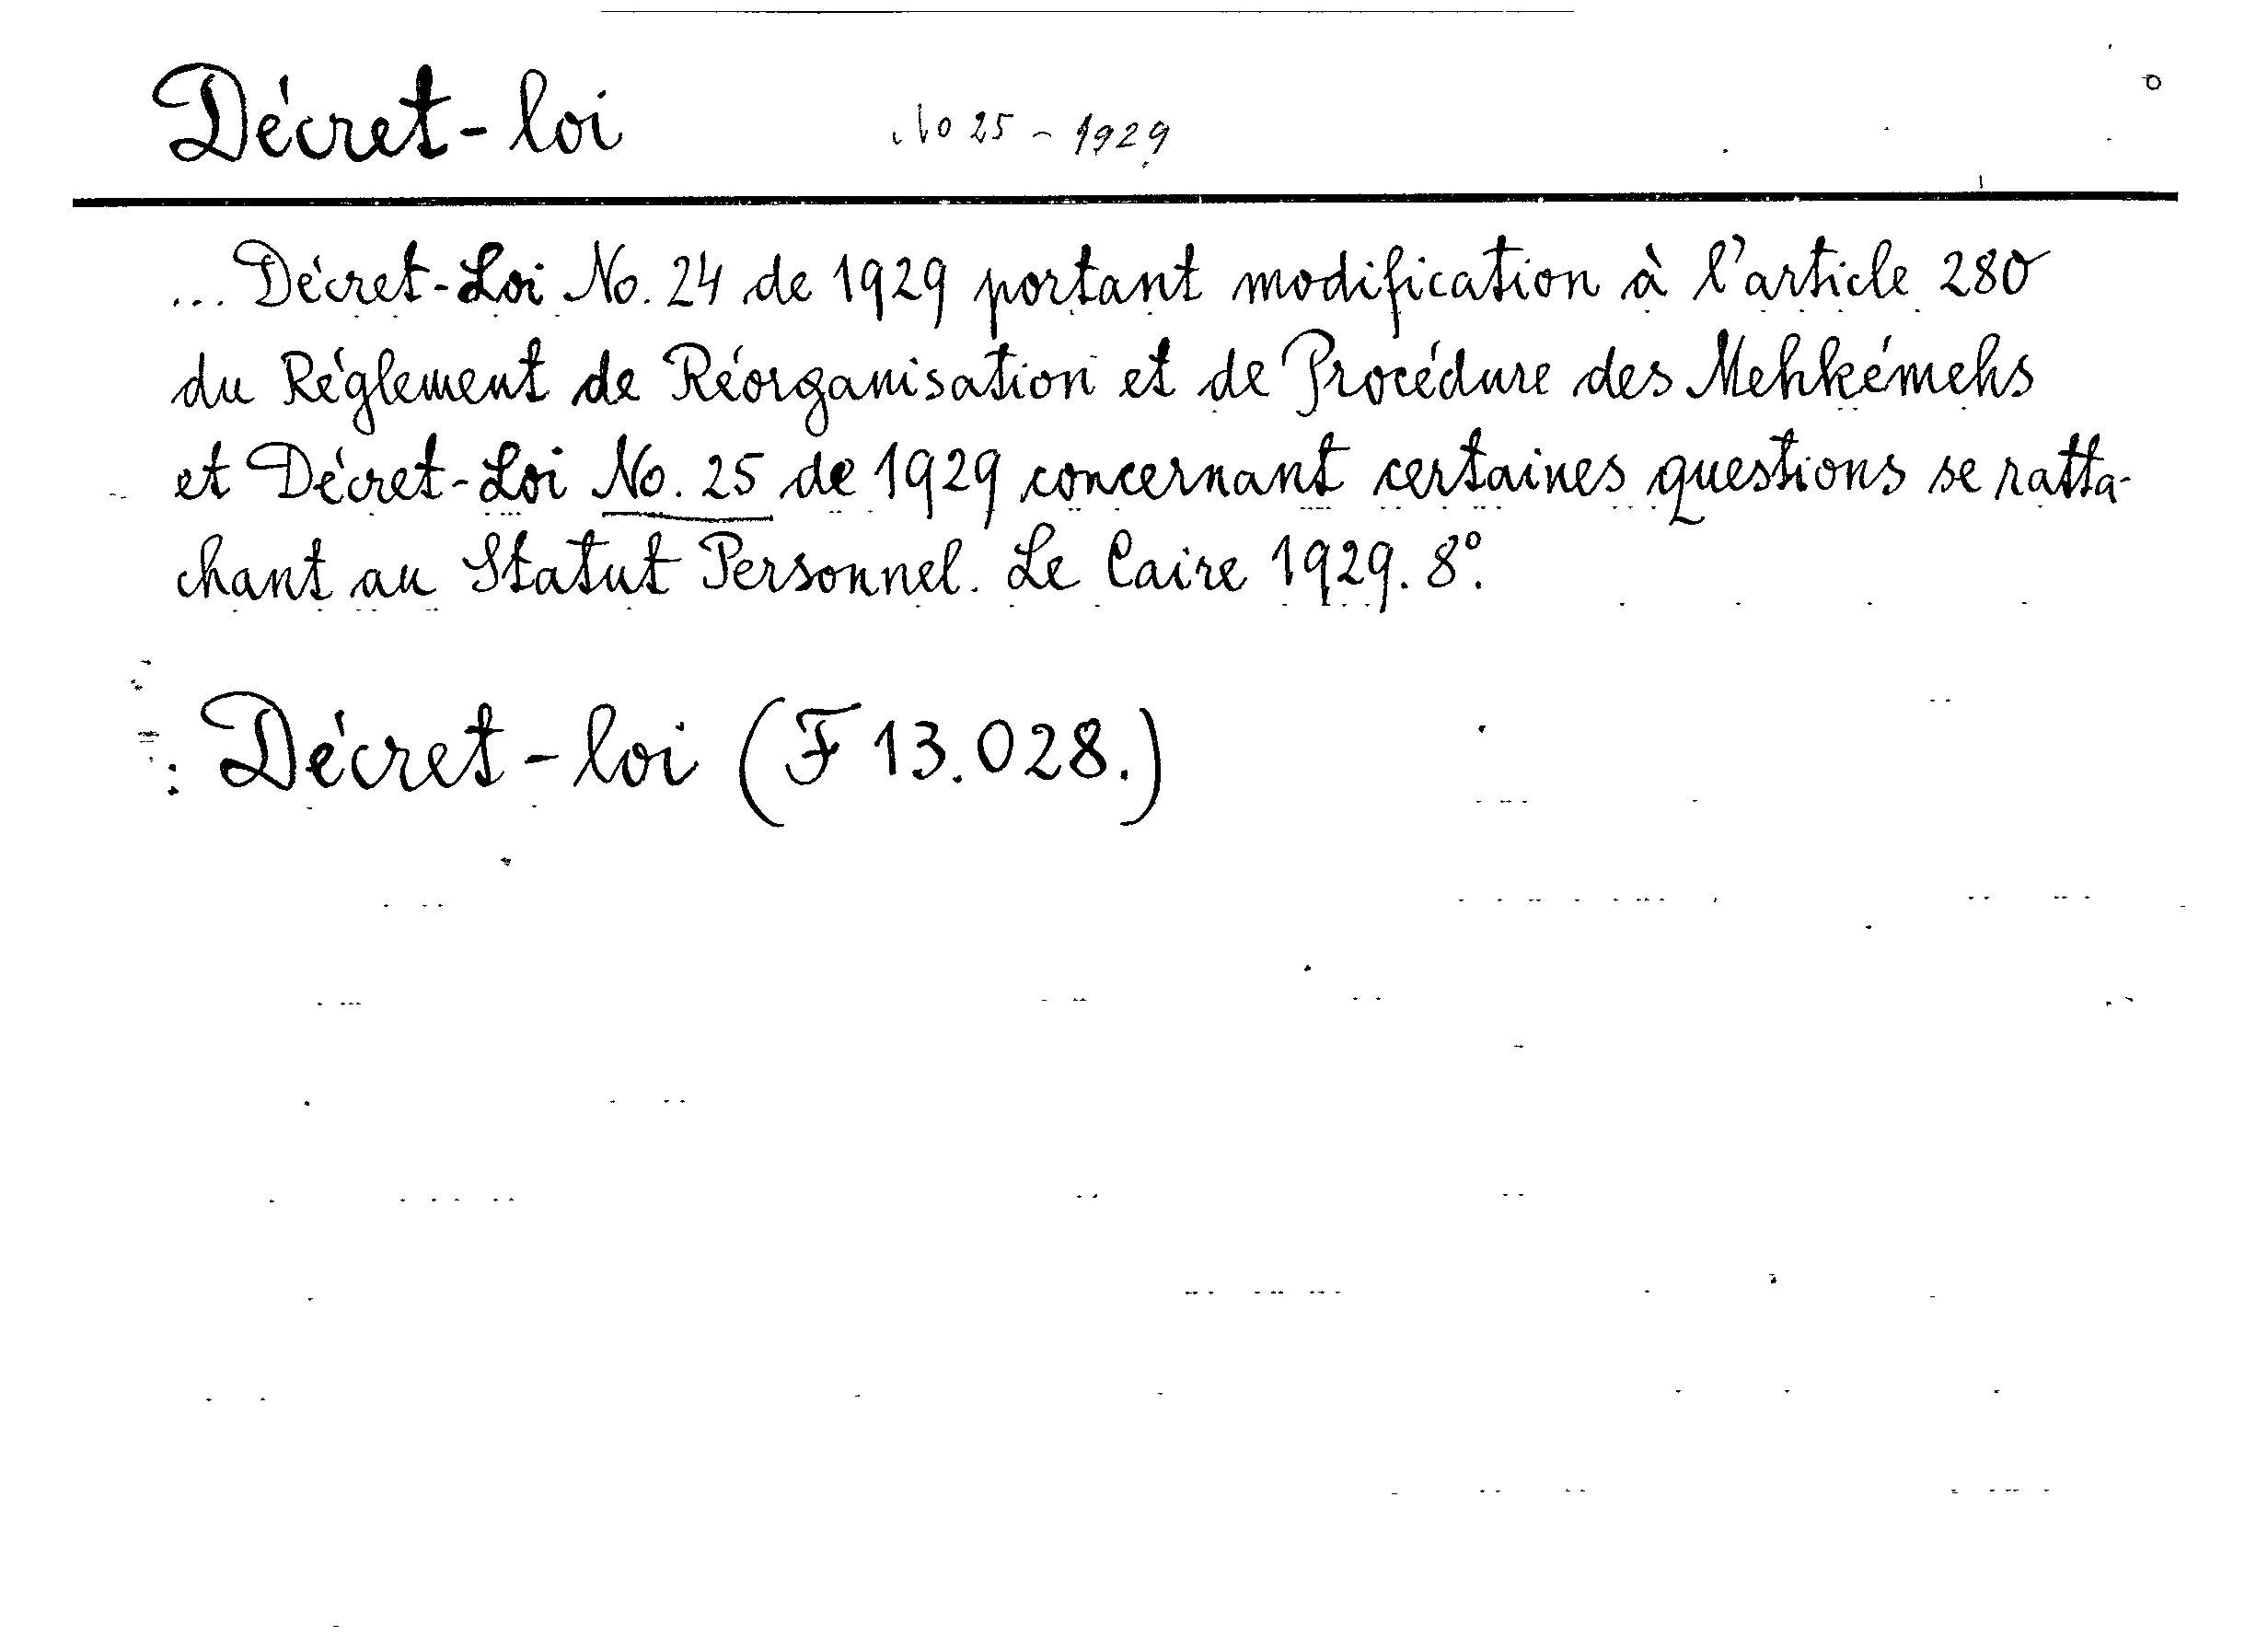 Décret-loi No 25 - 1929
... Décret-Loi No. 24 de 1929 portant modification à l'article 280
du Réglement de Réorganisation et de Procédure des Mehkémehs
et Décret-Loi No. 25 de 1929 concernant certaines questions se ratta-
chant au Statut Personnel. Le Caire 1929. 8°.
: Décret-loi (F 13.028.)